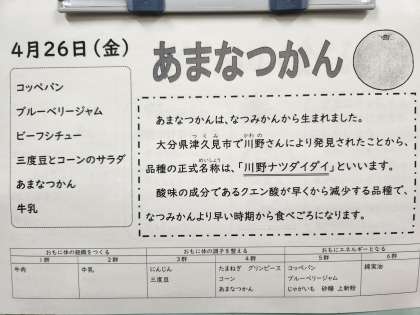 4月26日(金)
あまなつかん
コッペパン
ブルーベリージャム
ビーフシチュー
三度豆とコーンのサラダ
あまなつかん
牛乳
あまなつかんは、なつみかんから生まれました。
大分県津久見市で川野さんにより発見されたことから、
品種の正式名称は、「川野ナツダイダイ」といいます。
酸味の成分であるクエン酸が早くから減少する品種で、
なつみかんより早い時期から食べごろになります。
おもに体の組織をつくる おもに体の調子を整える おもにエネルギーとなる
1群 2群 3群 4群 5群 6群
牛肉 牛乳 にんじん たまねぎ グリンピース コッペパン 綿実油
三度豆 コーン ブルーベリージャム
あまなつかん じゃがいも 砂糖 上新粉